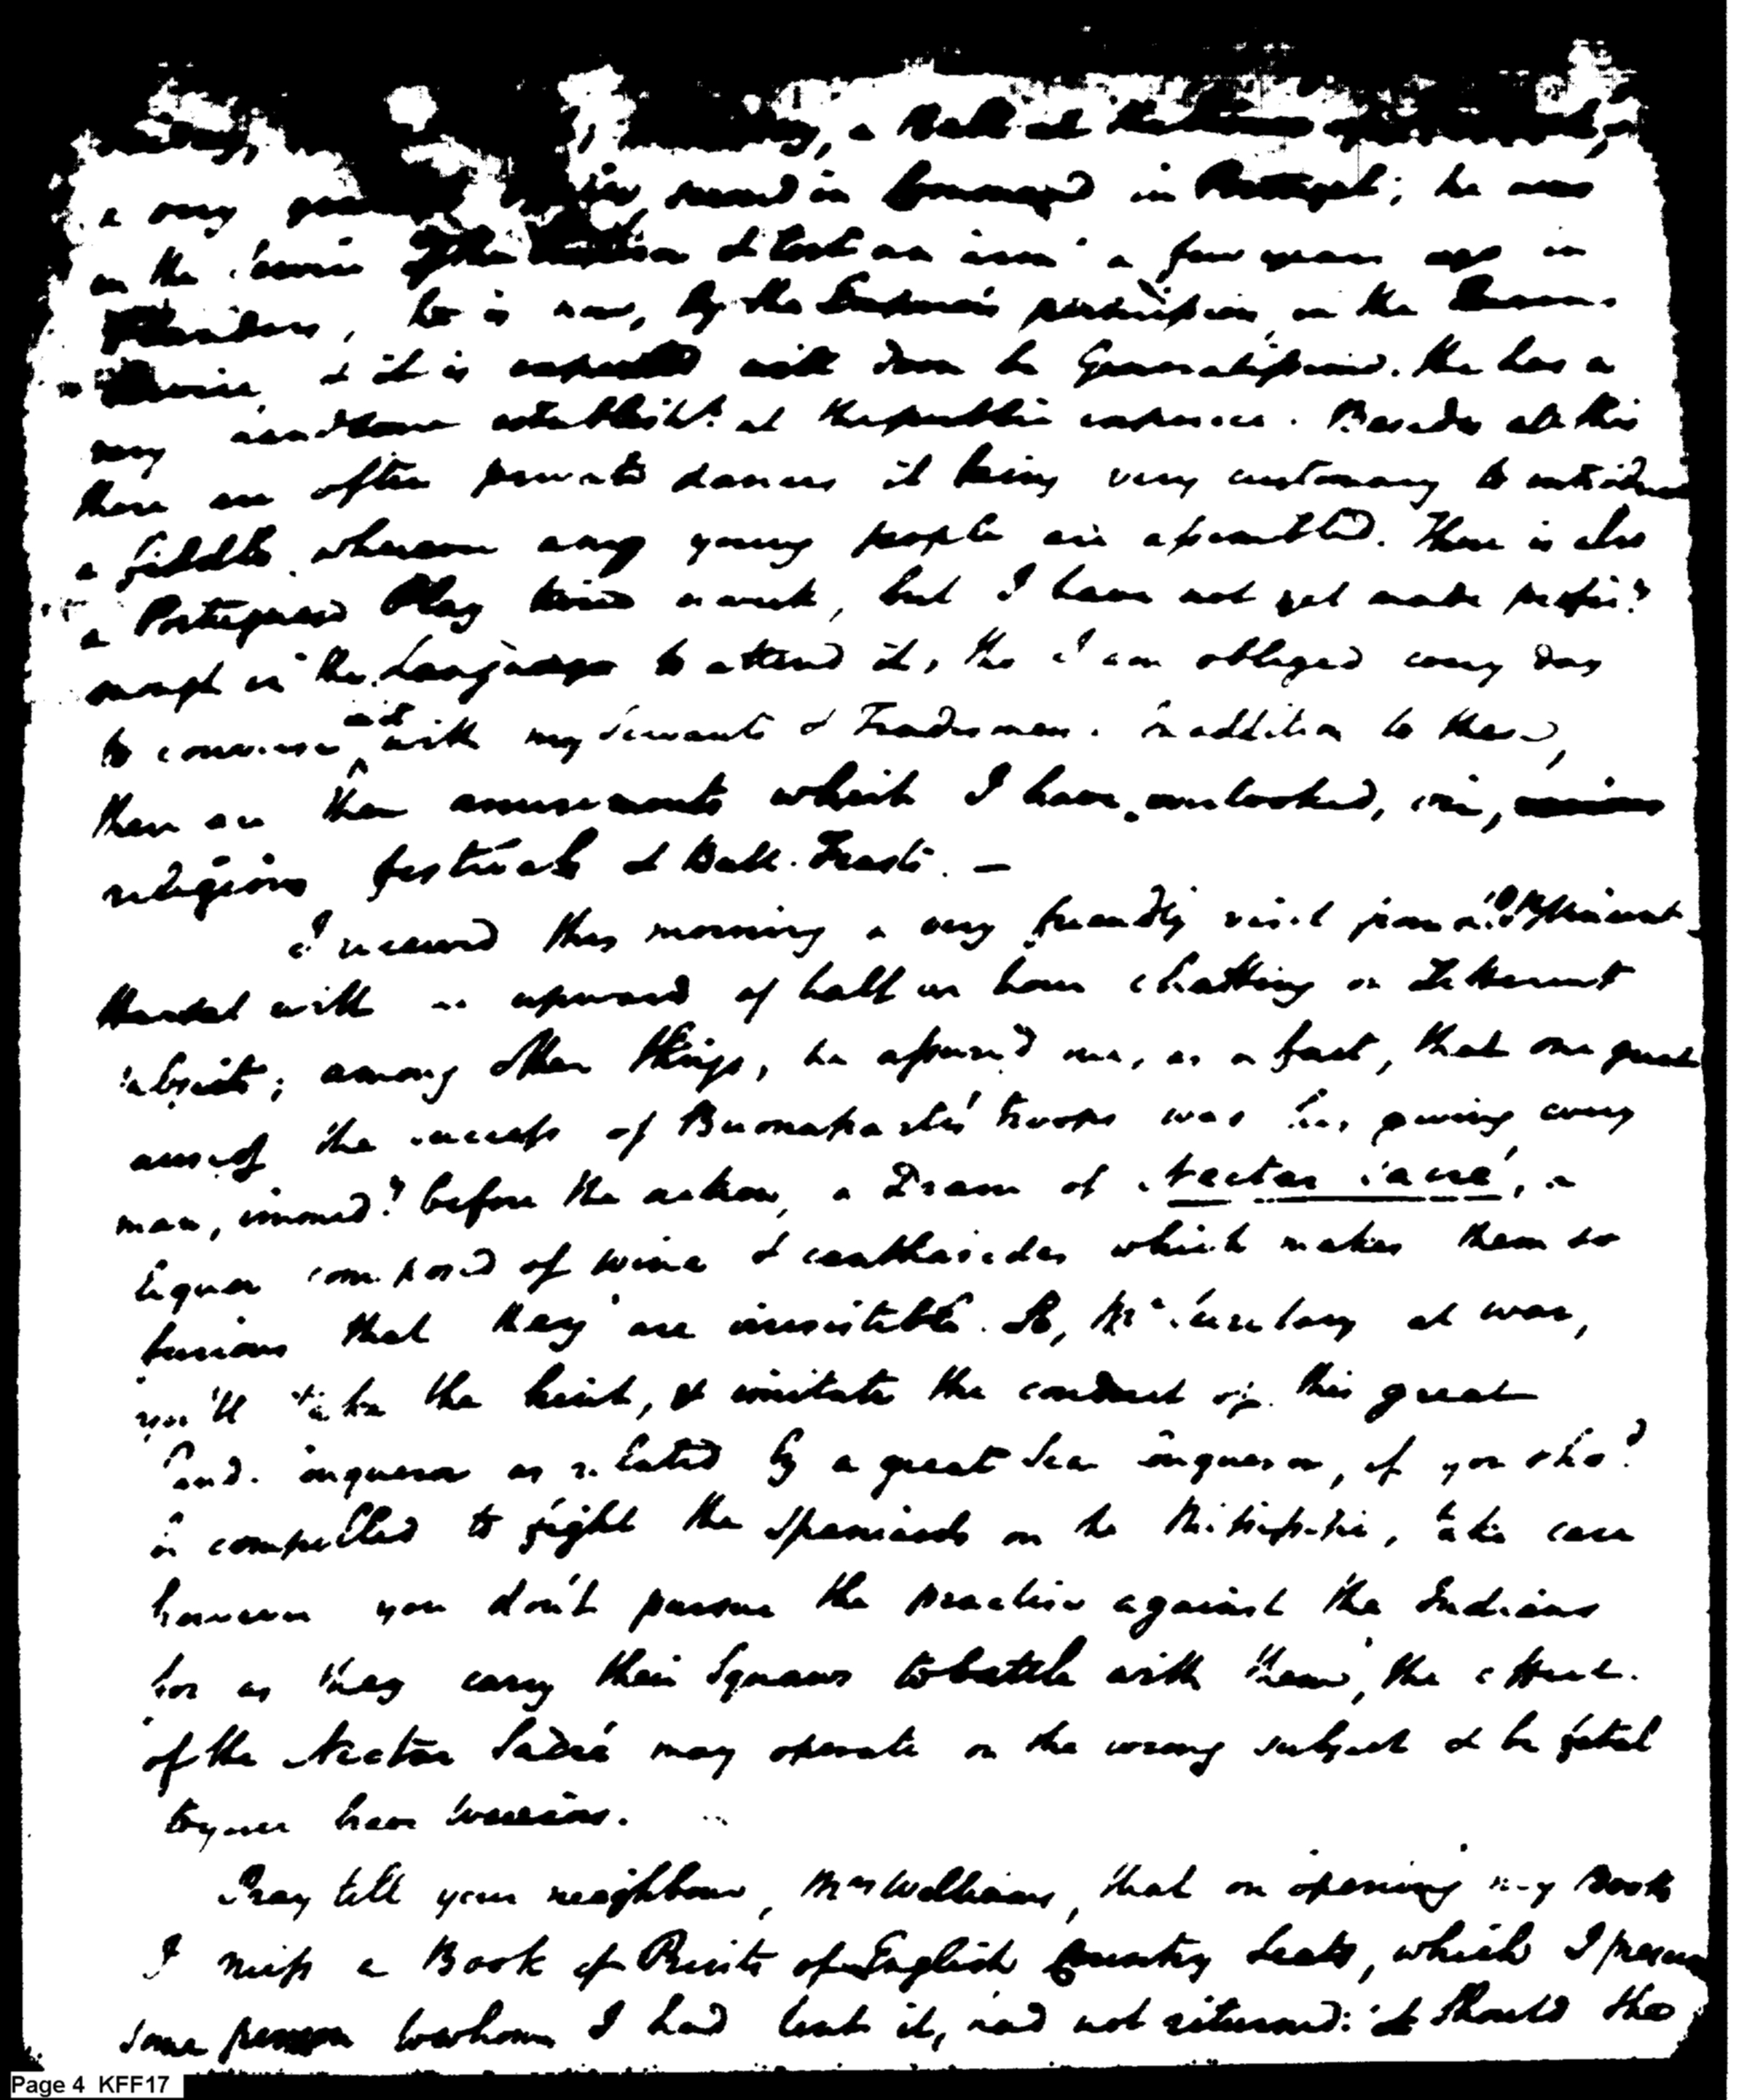 a
a very in Portugal; he was
in the a few years ago in
he is now, by the permission, in the
& it is expected will soon be Generalissimo. He has a
very handsome establisht. at the public expence. Besides all this
there are often private dances it being very customary to introduce
a fiddle whenever any young people are assembled. There is also
a Portuguese Play twice a week, but I have not yet made proficy.
enough in the Language to attend it, tho I am obliged every day
to converse with my Servants & Tradesmen. In addition to these,
there are other amusements which I have overlooked, viz,
religious festivals & Bull-Feasts. —
I received this morning a very friendly visit from
with us upward of half an hour chatting on different
subjects; among other things, he assured me, as a fact, that one great
cause of the success of Buonaparte's troops was his giving every
man, immedy. before the action, a Dram of Nectar Sacré, a
liquor composed of wine & cantharides which makes them so
furious that they are irresistible. So, Mr. Secretary at war,
you'll take the hint, & imitate the conduct of this great
Land Conqueror as related by a great Sea Conqueror, if you shod.
be compelled to fight the Spaniards on the Mississippi, take care
however you don't pursue the practice against the Indians
for as they carry their Squaws to battle with them, the effect
of the Nectar Sacré may operate on the wrong subject & be fatal
to your brave warriors.
Pray tell your neighbour, Mrs Williams, that on opening my Books
I miss a Book of Prints of English Country Seats, which I presume
some person to whom I had lent it, had not returned: it should tho